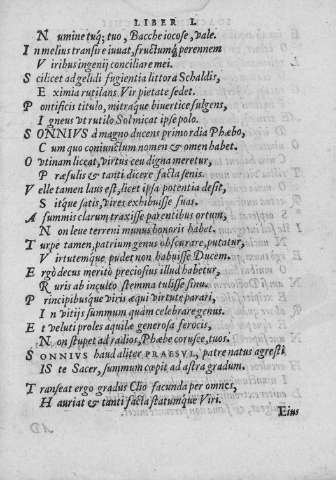 LIBER I.
Numine tuq; tuo, Bacche iocose, vale.
In melius transire iuuat, fructumq́; perennem
Viribus ingenij conciliare mei.
Scilicet ad gelidi fugientia littora Schaldis,
Eximia rutilans Vir pietate sedet.
Pontificis titulo, mitraque biuertice fulgens,
Igneus vt rutilo Sol micat ipse polo.
SONNIVS à magno ducens primordia Phœbo,
Cum quo coniunctum nomen & omen habet.
O vtinam liceat, virtus ceu digna meretur,
Præsulis & tanti dicere facta senis.
Velle tamen laus est, licet ipsa potentia desit,
Sitque satis, vires exhibuisse suas.
A summis clarum traxisse parentibus ortum,
Non leue terreni munus honoris habet.
Turpe tamen, patrium genus obscurare, putatur,
Virtutemque pudet non habuisse Ducem.
Ergò decus meritò preciosius illud habetur,
Ruris ab inculto stemma tulisse sinu.
Principibusque viris æqui virtute parari,
In vitijs summum quàm celebrare genus.
Et veluti proles aquilæ generosa ferocis,
Non stupet ad radios, Phœbe corusce, tuos:
SONNIVS haud aliter PRAESVL, patre natus agresti
IS te Sacer, summum cœpit ad astra gradum.
Transeat ergo gradus Clio facunda per omnes,
Hauriat & tanti facta statumque Viri.
Eius